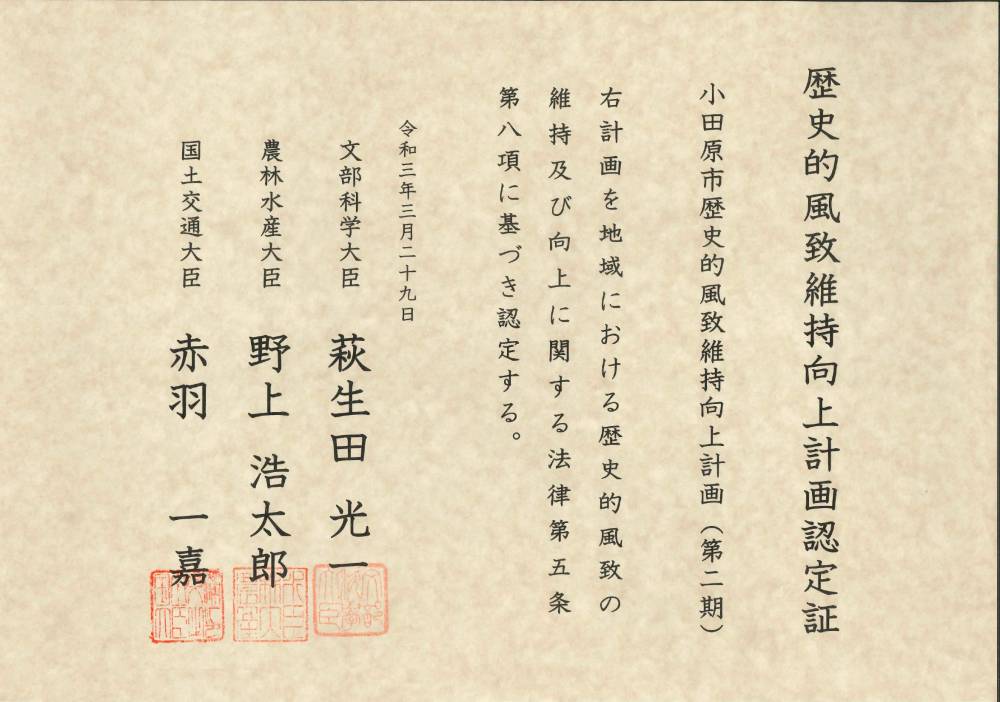 歴史的風致維持向上計画認定証
小田原市歴史的風致維持向上計画（第二期）
右計画を地域における歴史的風致の
維持及び向上に関する法律第五条
第八項に基づき認定する。
令和三年三月二十九日
文部科学大臣 萩生田 光一
農林水産大臣 野上 浩太郎
国土交通大臣 赤羽 一嘉